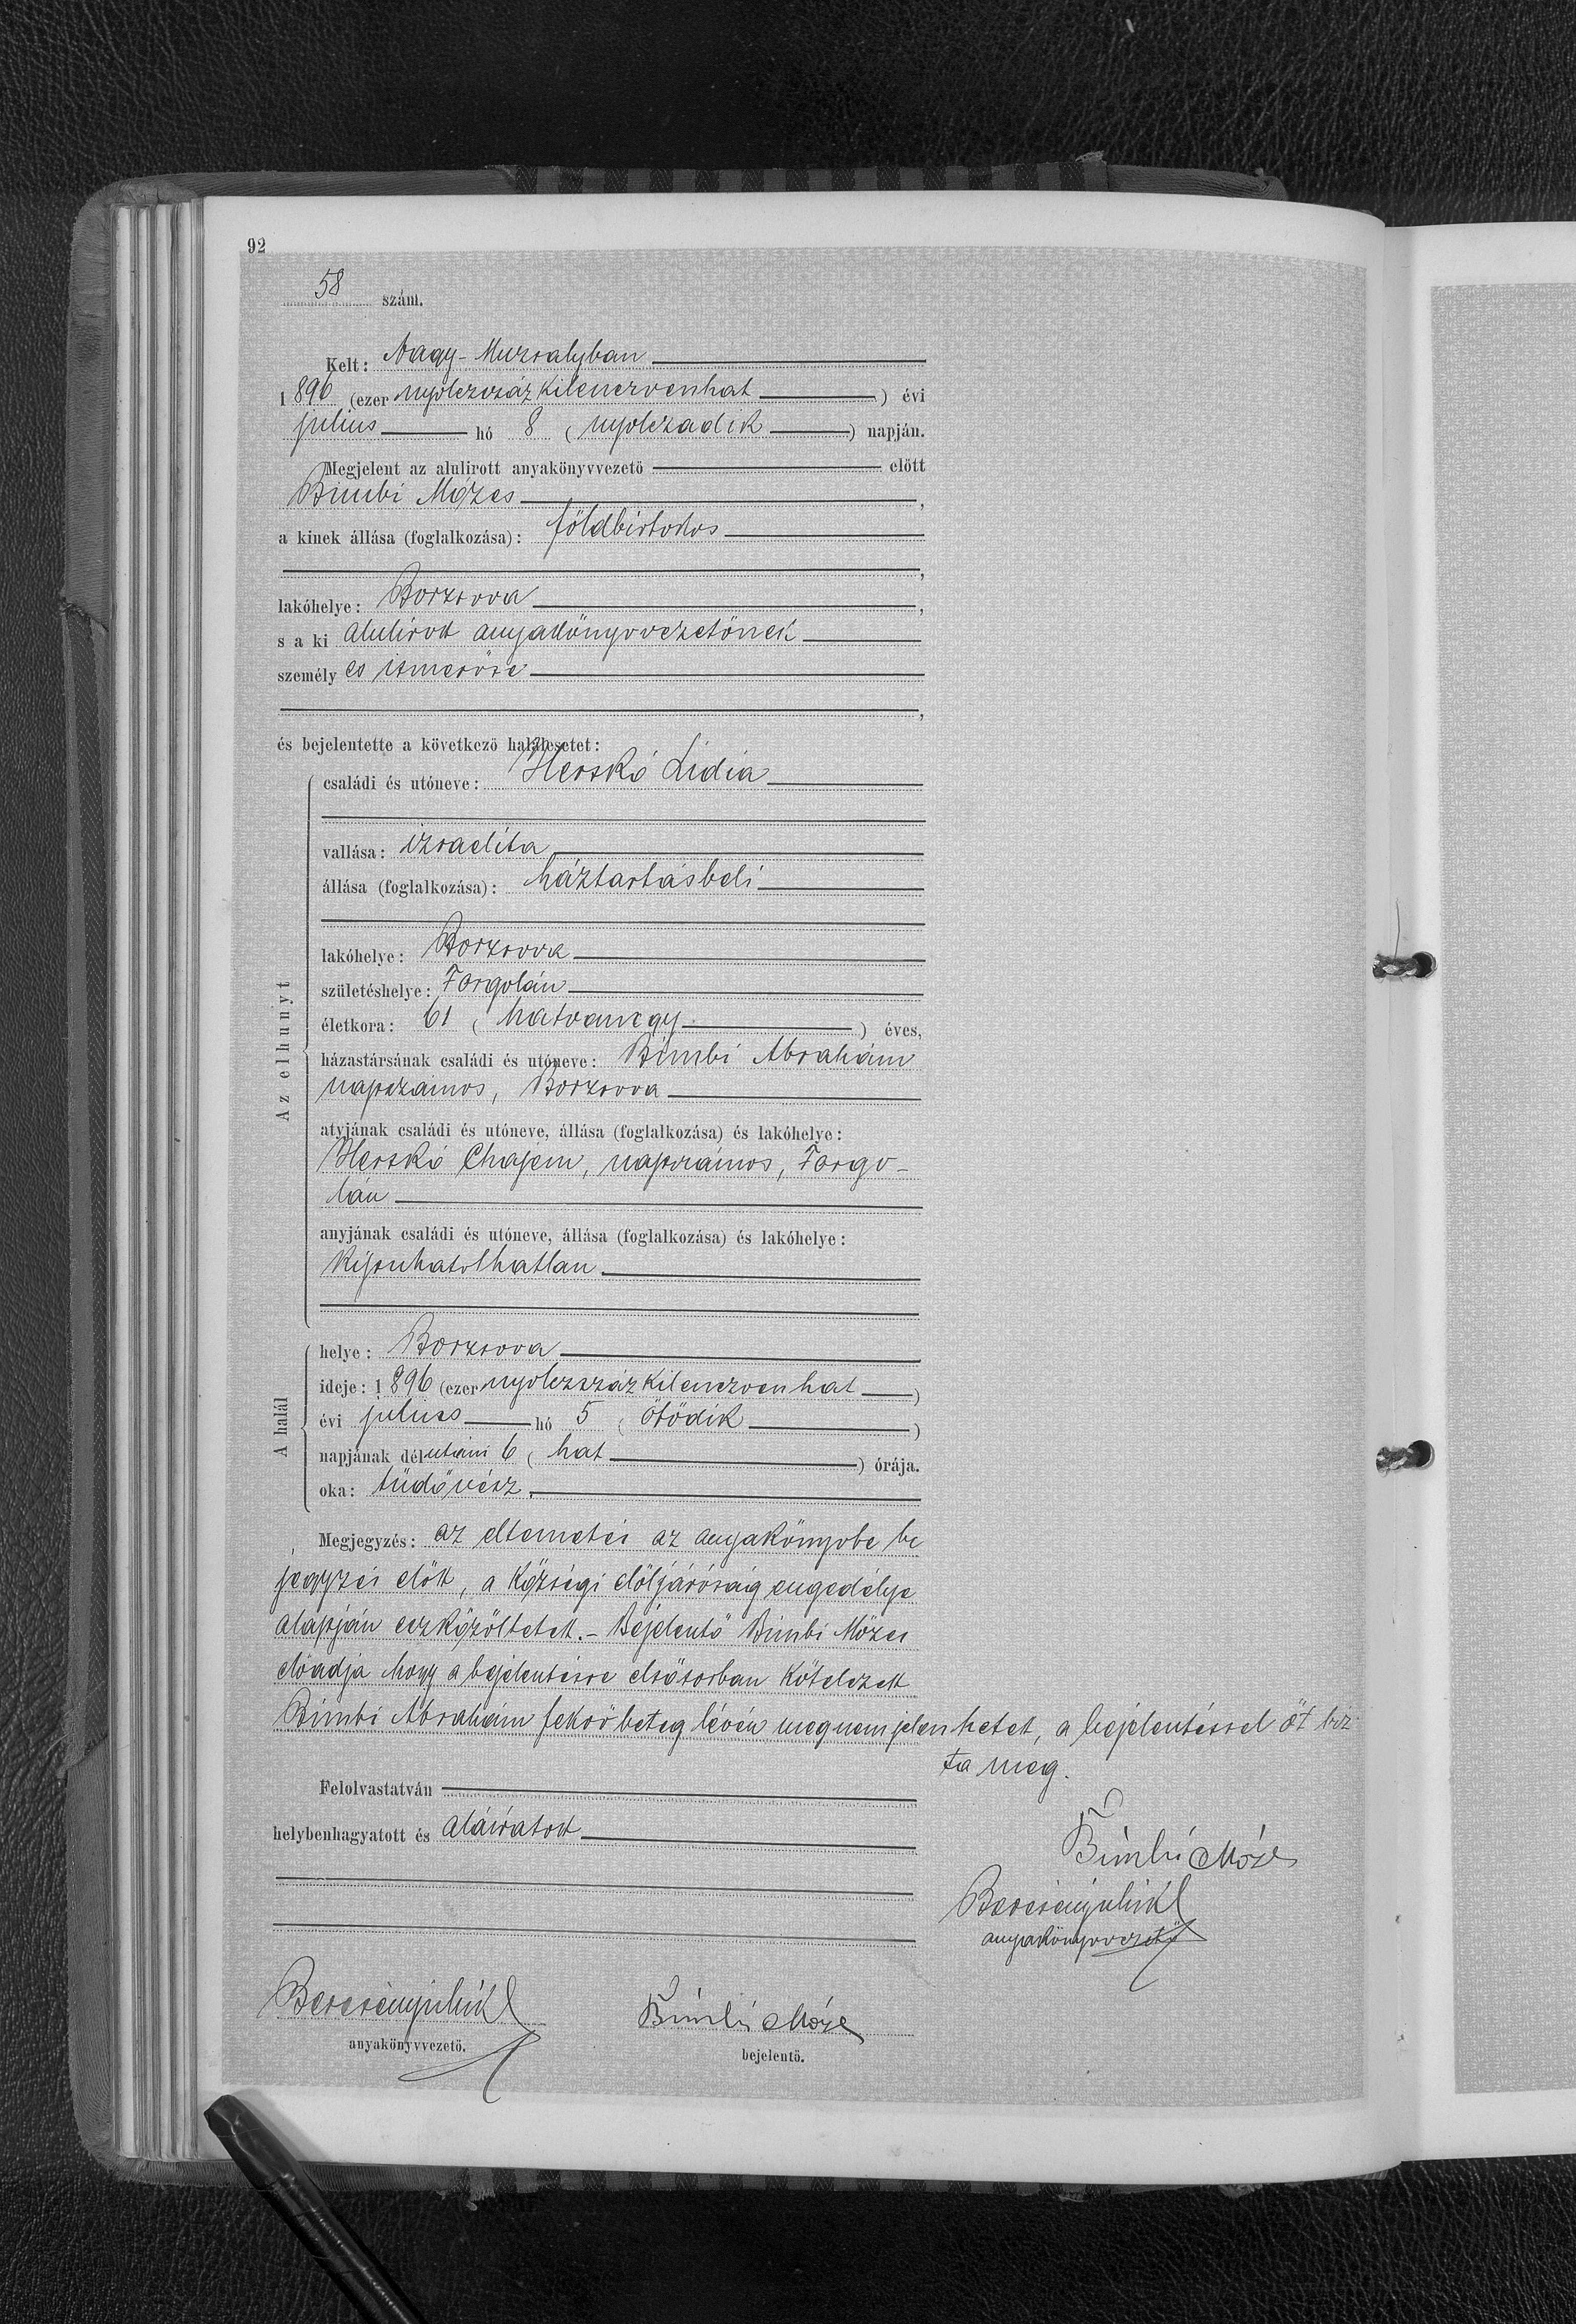 92
58 szám.
Kelt: Nagy-Muzsalyban
1896 (ezer nyolczszáz kilenczvenhat) évi
julius hó 8 (nyolczadik) napján.
Megjelent az alulirott anyakönyvvezető előtt
Bimbi Mózes,
a kinek állása (foglalkozása): földbirtokos
,
lakóhelye: Borzsova,
s a ki alulirott anyakönyvvezetőnek
személyes ismerőse
,
és bejelentette a következő halálesetet:
Az elhunyt
családi és utóneve: Herskó Lidia
vallása: izraelita
állása (foglalkozása): háztartásbeli
lakóhelye: Borzsova
születéshelye: Forgolán
életkora: 61 (hatvanegy) éves,
házastársának családi és utóneve: Bimbi Abrahám
napszámos, Borzsova
atyjának családi és utóneve, állása (foglalkozása) és lakóhelye:
Herskó Chajem, napszámos, Forgo-
lán
anyjának családi és utóneve, állása (foglalkozása) és lakóhelye:
Kipuhatolhatlan
A halál
helye: Borzsova
ideje: 1896 (ezer nyolczszáz kilenczvenhat)
évi julius hó 5 (ötödik)
napjának délutáni 6 (hat) órája.
oka: tüdővész.
Megjegyzés: az eltemetés az anyakönyvbe be
jegyzés előtt, a községi elöljáróság engedélye
alapján eszközöltetett.- Bejelentő Bimbi Mózes
előadja hogy a bejelentésre elsősorban kötelezett
Bimbi Abrahám fekvő beteg lévén meg nem jelenhetet, a bejelentéssel őt biz-
ta meg.
Felolvastatván
helybenhagyatott és aláiratott
Bimbi Móze
anyakönyvvezető
Bimbi Móze
anyakönyvvezető.
bejelentő.